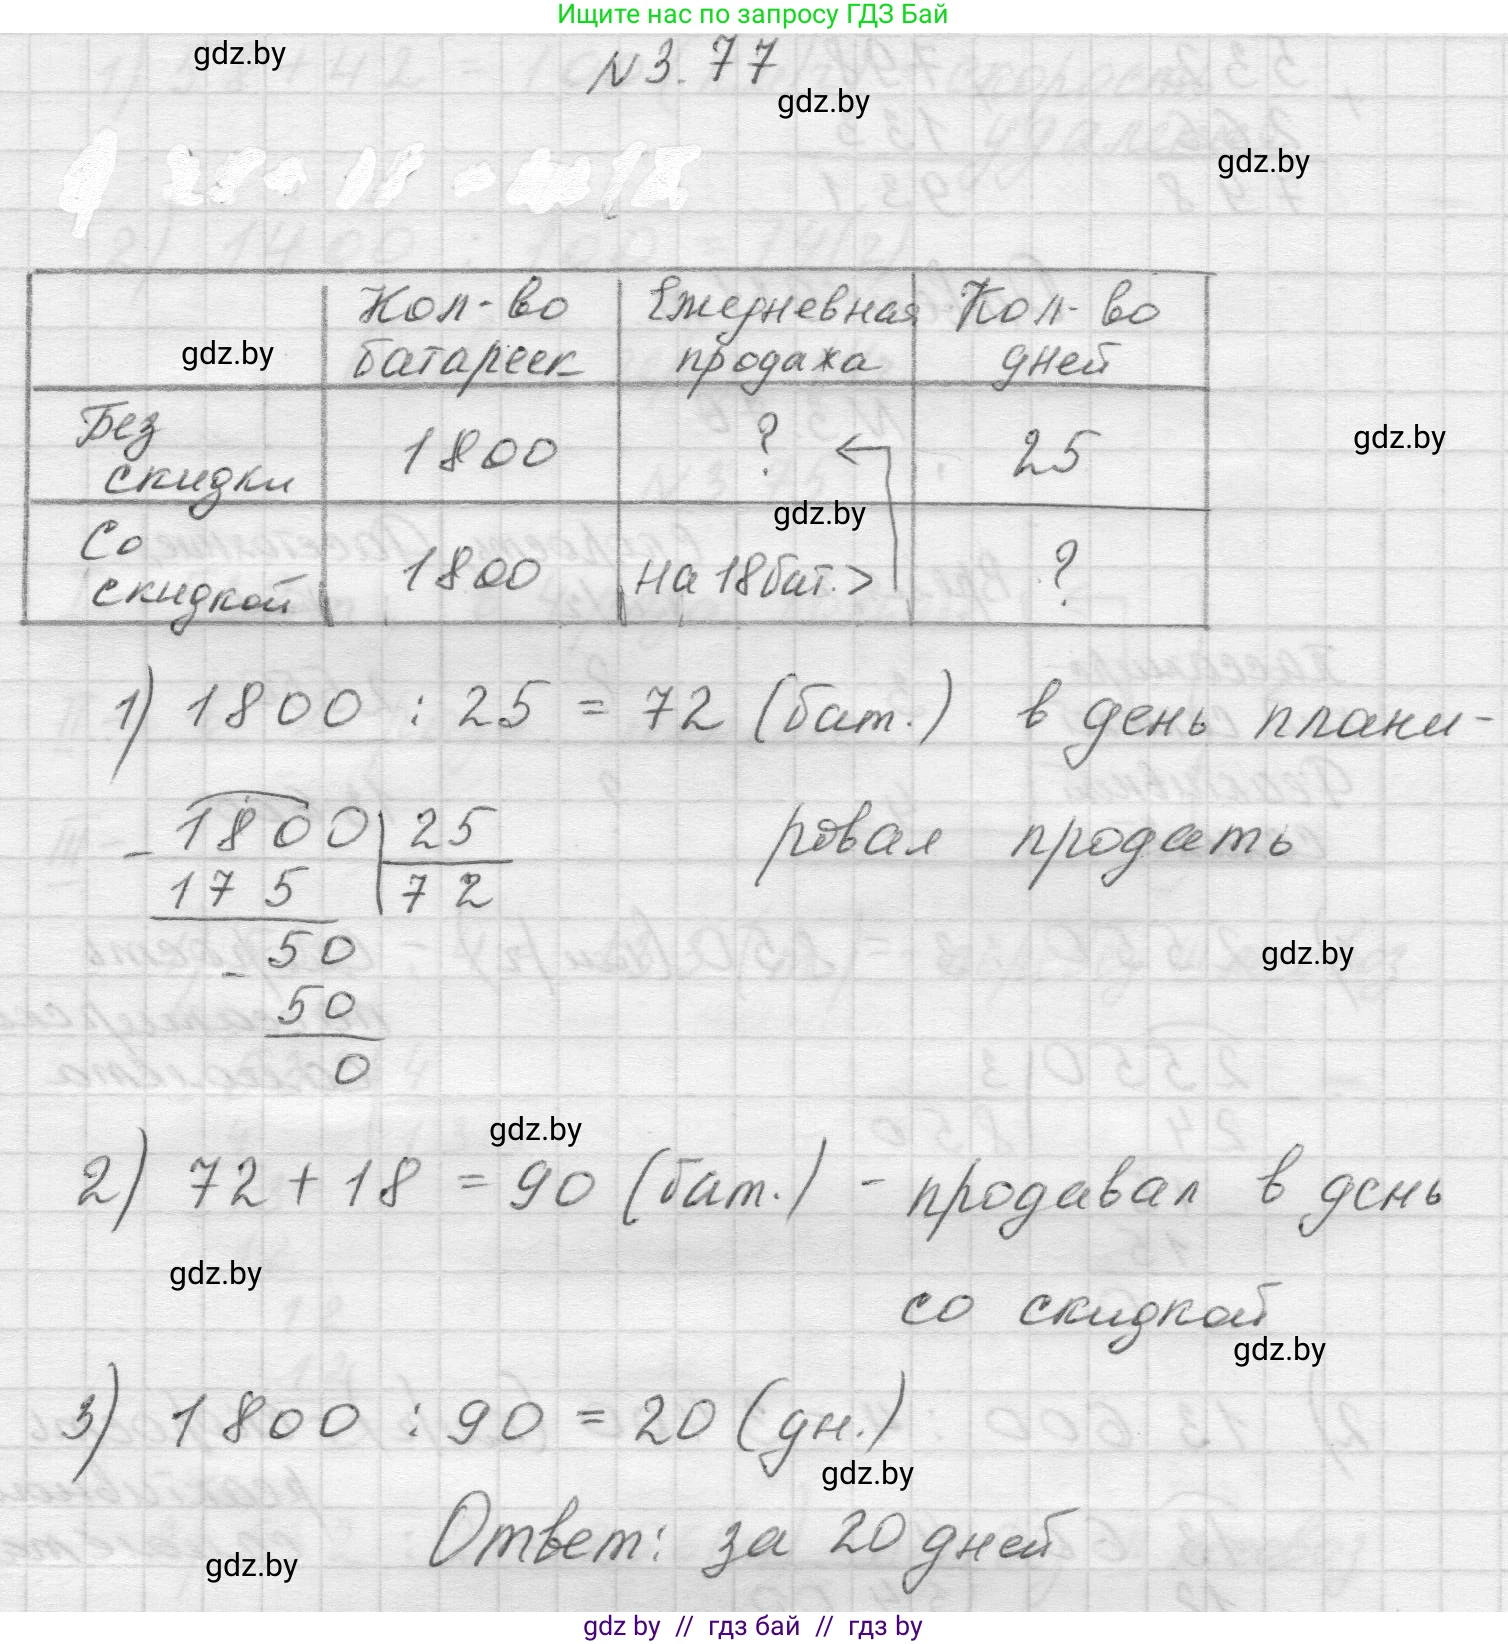 Ищите нас по запросу ГДЗ Бай
gdz.by
№3.77
gdz.by
gdz.by
Кол-во батареек
Ежедневная продажа
Кол-во дней
gdz.by
Без скидки
1800
?
25
gdz.by
gdz.by
Со скидкой
1800
на 18 бат. >
?
1) 1800 : 25 = 72 (бат.) в день плани-
ровал продать
- 1800 25
175 72
- 50
50
0
gdz.by
gdz.by
2) 72 + 18 = 90 (бат.) - продавал в день
gdz.by
со скидкой
gdz.by
3) 1800 : 90 = 20 (дн.)
gdz.by
Ответ: за 20 дней
gdz.by
gdz by // гдз бай // гдз by